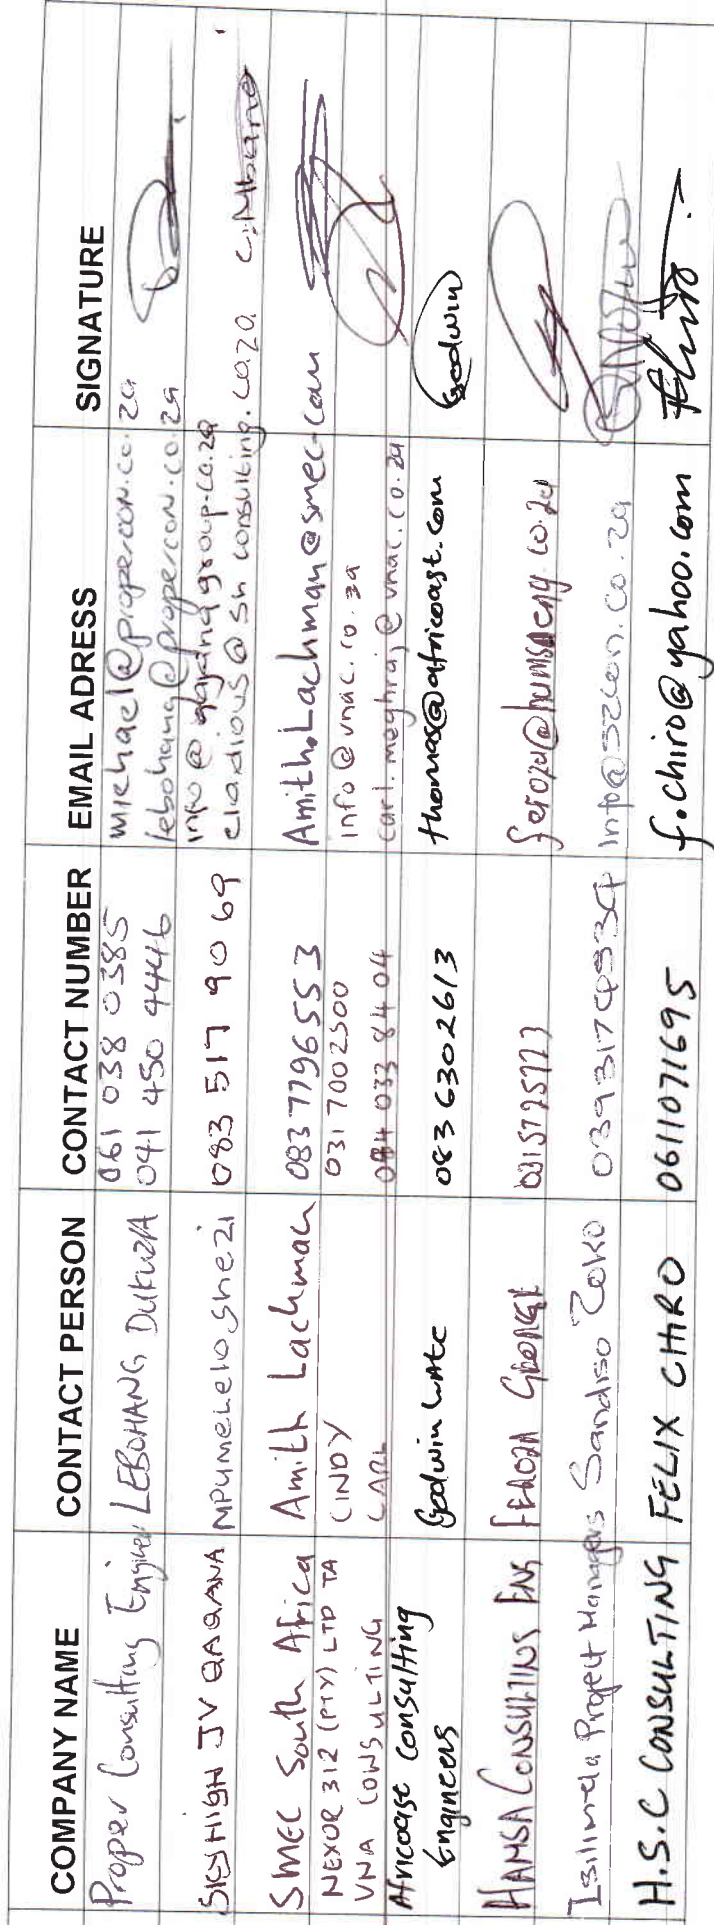 COMPANY NAME CONTACT PERSON CONTACT NUMBER EMAIL ADRESS SIGNATURE
Proper Consulting Engineer LEBOHANG DUKUZA 061 038 0385 michael@propercon.co.za
041 450 4446 lebohang@propercon.co.za
SKYHIGH JV QAQANA MPUMELELO SHEZI 083 517 9069 info@qaqanagroup.co.za
claxdious@sh consulting.co.za C.Mbana
SMEC South Africa Amith Lachman 083 7796553 Amith.Lachman@smec.com
NEXOR 312 (PTY) LTD TA CINDY 031 7002500 info@vnac.co.za
VNA CONSULTING CARL 084 033 8404 carl.meghraj@vnac.co.za
Africoast Consulting
Engineers Godwin 083 6302613 thomas@africoast.com Godwin
HAMSA CONSULTING ENG FEROZA GEORGE 0315725723 feroza@hamsaeng.co.za
Isilimela Project Managers Sandiso Zoko 0393174334 info@szcon.co.za
H.S.C CONSULTING FELIX CHIRO 0611071695 f.chiro@yahoo.com